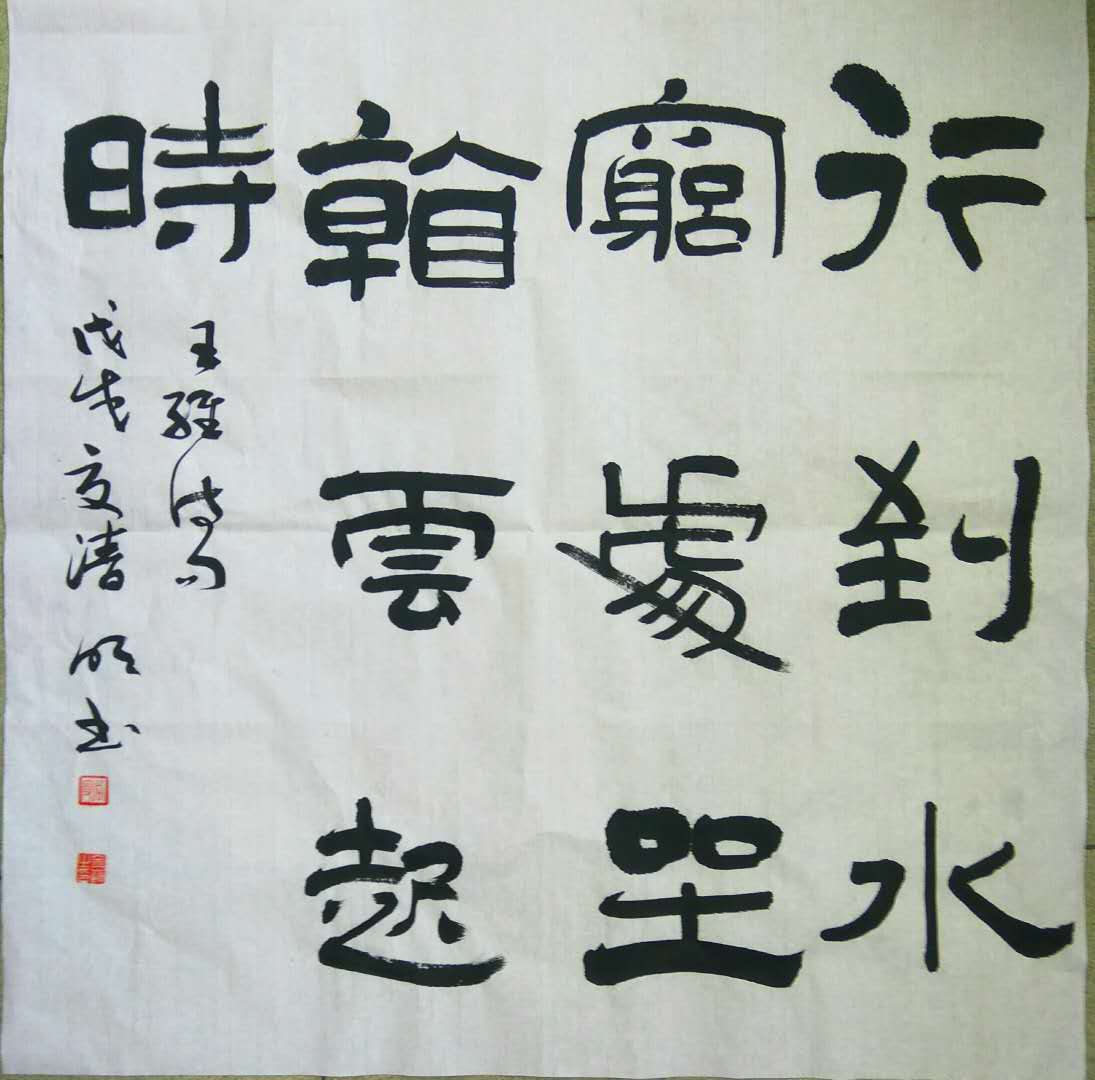 行到水
窮處坐
看雲起
時
王維詩句
戊戌夏清明书